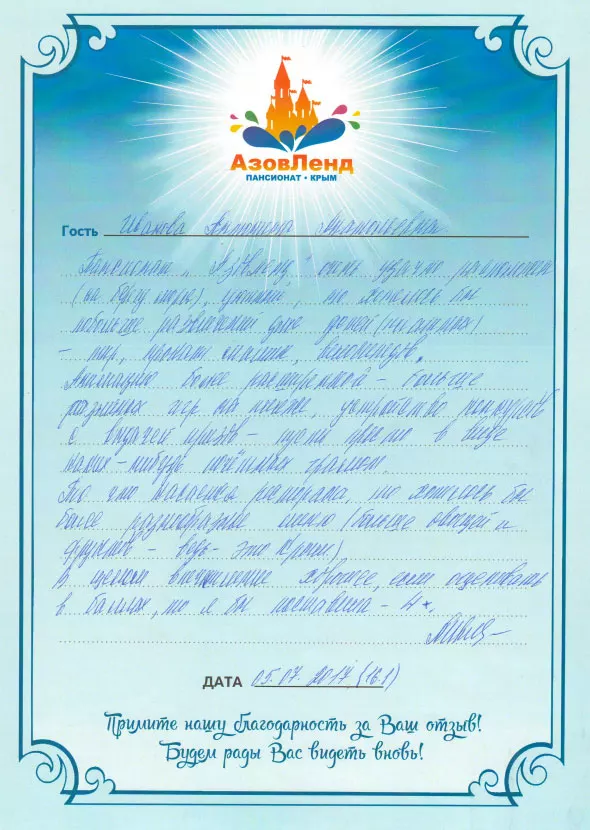 АзовЛенд
ПАНСИОНАТ • КРЫМ
Гость Иванова Антонина Анатольевна
Пансионат "АзовЛенд" очень удачно расположен
(на берегу моря), уютный, но хотелось бы
побольше развлечений для детей
– тир, прокат машин, велосипедов.
Анимацию более расширенной – больше
разных игр на пляже, устройство конкурсов
с выдачей призов – пусть просто в виде
каких-нибудь почётных грамот.
То что касается ресторана, то хотелось бы
более разнообразное меню (больше овощей и
фруктов – ведь – это Крым)
В целом впечатление хорошее, если оценивать
в баллах, то я бы поставила – 4*.
ДАТА 05.07.2017 (16.1)
Примите нашу благодарность за Ваш отзыв!
Будем рады Вас видеть вновь!